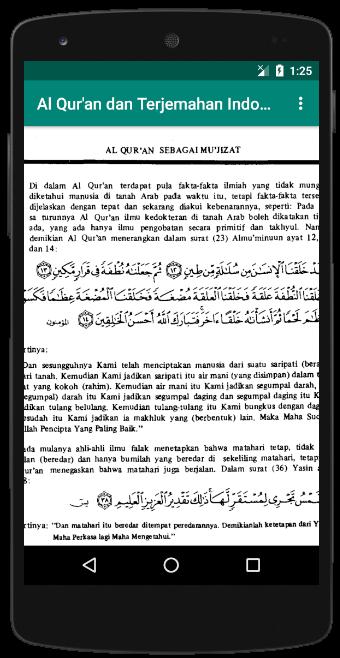 1:25
Al Qur'an dan Terjemahan Indo...
AL QUR'AN SEBAGAI MU'JIZAT
Di dalam Al Qur'an terdapat pula fakta-fakta ilmiah yang tidak mung
diketahui manusia di tanah Arab pada waktu itu, tetapi fakta-fakta terse
dijelaskan dengan tepat dan sekarang diakui kebenarannya, seperti: Pada
sa turunnya Al Qur'an ilmu kedokteran di tanah Arab boleh dikatakan ti
ada, yang ada hanya ilmu pengobatan secara primitif dan takhyul. Nam
demikian Al Qur'an menerangkan dalam surat (23) Almu'minuun ayat 12,
dan 14:
ـدْ خَلَقْنَا الْإِنْسَانَ مِنْ سُلَالَةٍ مِنْ طِينٍ ﴿١٢﴾ ثُمَّ جَعَلْنَاهُ نُطْفَةً فِي قَرَارٍ مَكِينٍ ﴿١٣﴾
لَقْنَا النُّطْفَةَ عَلَقَةً فَخَلَقْنَا الْعَلَقَةَ مُضْغَةً فَخَلَقْنَا الْمُضْغَةَ عِظَامًا فَكَسَو
ظَامَ لَحْمًا ثُمَّ أَنْشَأْنَاهُ خَلْقًا آخَرَ فَتَبَارَكَ اللَّهُ أَحْسَنُ الْخَالِقِينَ ﴿١٤﴾ المؤمنون
rtinya:
Dan sesungguhnya Kami telah menciptakan manusia dari suatu saripati (bera
ari tanah. Kemudian Kami jadikan saripati itu air mani (yang disimpan) dalam t
at yang kokoh (rahim). Kemudian air mani itu Kami jadikan segumpal darah,
egumpal) darah itu Kami jadikan segumpal daging dan segumpal daging itu K
adikan tulang belulang, Kemudian tulang-tulang itu Kami bungkus dengan dag
esudah itu Kami jadikan ia makhluk yang (berbentuk) lain. Maka Maha Suc
llah Pencipta Yang Paling Baik."
ada mulanya ahli-ahli ilmu falak menetapkan bahwa matahari tetap, tidak
lan (beredar) dan hanya bumilah yang beredar di sekeliling matahari, tetap
ur'an menegaskan bahwa matahari juga berjalan. Dalam surat (36) Yasin a
8:
ـمْسُ تَجْرِي لِمُسْتَقَرٍّ لَهَا ذَلِكَ تَقْدِيرُ الْعَزِيزِ الْعَلِيمِ ﴿٣٨﴾ يس
rtinya: "Dan matahari itu beredar ditempat peredarannya. Demikianlah ketetapan dari Y
Maha Perkasa lagi Maha Mengetahui."